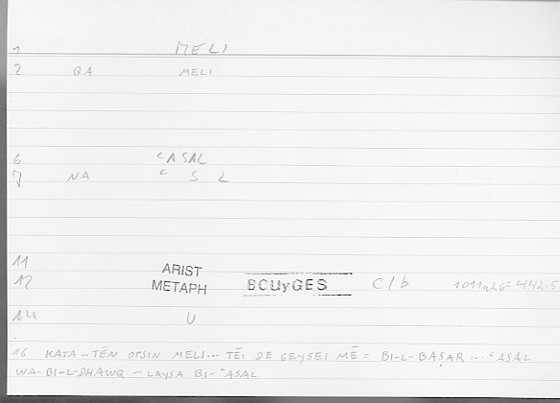 1 MELI
2 QA MELI
6 ʿASAL
7 NA ʿ S L
11 ARIST
12 METAPH BOUyGES C/b 1011a26=442.5
14 U
16 KATA-TĒN OPSIN MELI... TĒI DE GEYSEI MĒ = BI-L-BAṢAR ... ʿASAL
WA-BI-L-DHAWQ - LAYSA BI-ʿASAL